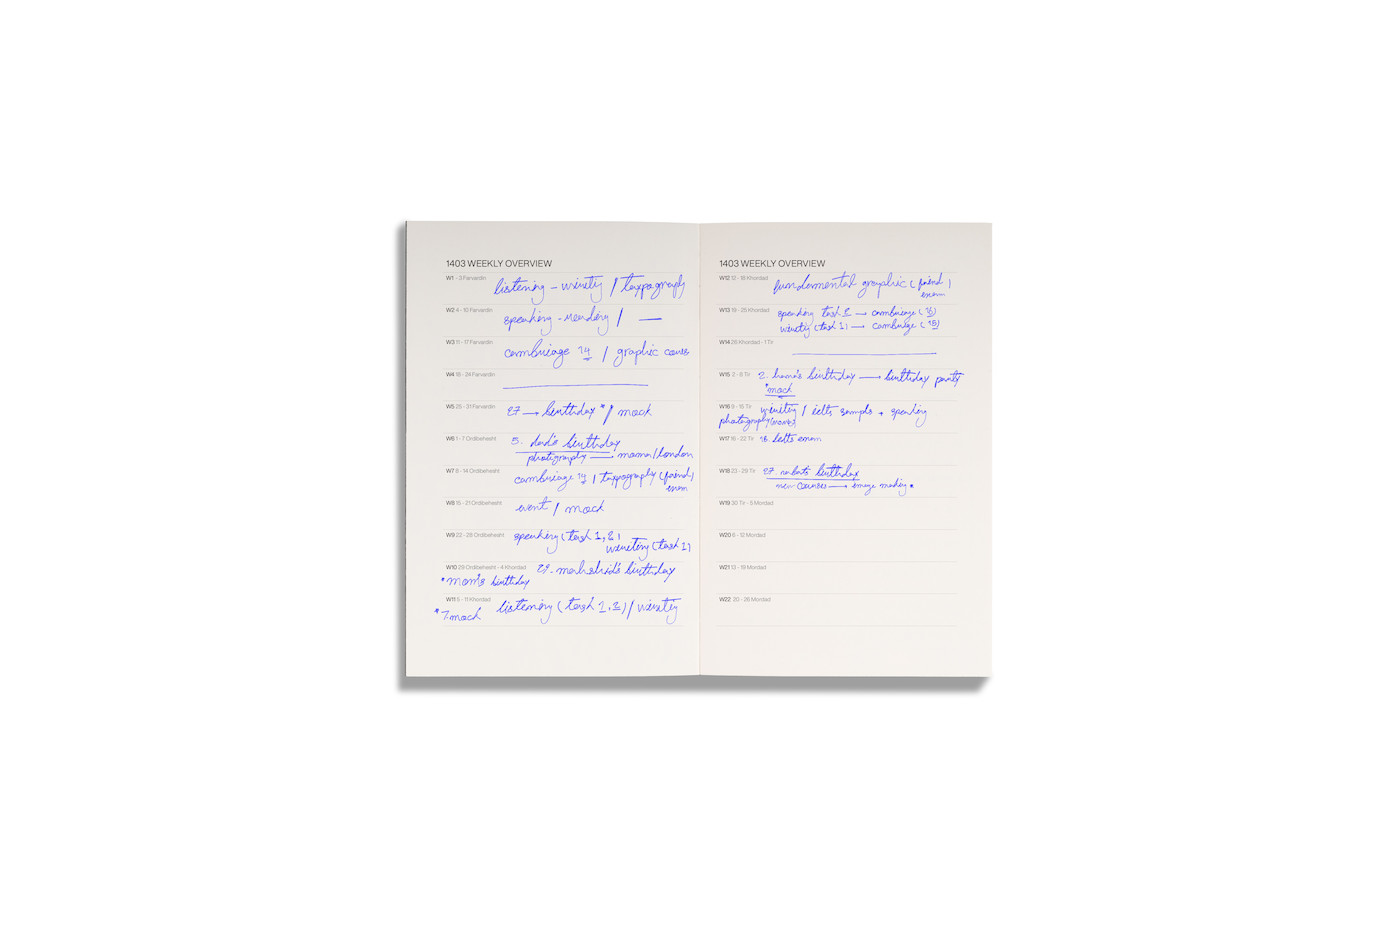 1403 WEEKLY OVERVIEW
W1 - 3 Farvardin
listening - wirtiy / taypography
W2 4 - 10 Farvardin
speaking - Reading / —
W3 11 - 17 Farvardin
cambriage 14 / graphic cours
W4 18 - 24 Farvardin
W5 25 - 31 Farvardin
27 → birthday * / mock
W6 1 - 7 Ordibehesht
5. dad's birthday
photography → mama/london
W7 8 - 14 Ordibehesht
cambriage 14 / taypography (faind)
exam
W8 15 - 21 Ordibehesht
event / mock
W9 22 - 28 Ordibehesht
speaking (task 1,2)
wirtiey (task 1)
W10 29 Ordibehesht - 4 Khordad
29. mahshid's birthday
*mom's birthday
W11 5 - 11 Khordad
listening (task 1,2) / wirtiy
*7.mock
1403 WEEKLY OVERVIEW
W12 12 - 18 Khordad
fundemental graphic (faind)
exam
W13 19 - 25 Khordad
speaking task 2 → cambriage (16)
wirtiy (task 1) → cambriage (15)
W14 26 Khordad - 1 Tir
W15 2 - 8 Tir
2. hana's birthday → birthday party
*mock
W16 9 - 15 Tir
wirtiey / ielts sample + speaking
photography
W17 16 - 22 Tir
18. Ielts exam
W18 23 - 29 Tir
27. birthday
new courses → image making *
W19 30 Tir - 5 Mordad
W20 6 - 12 Mordad
W21 13 - 19 Mordad
W22 20 - 26 Mordad